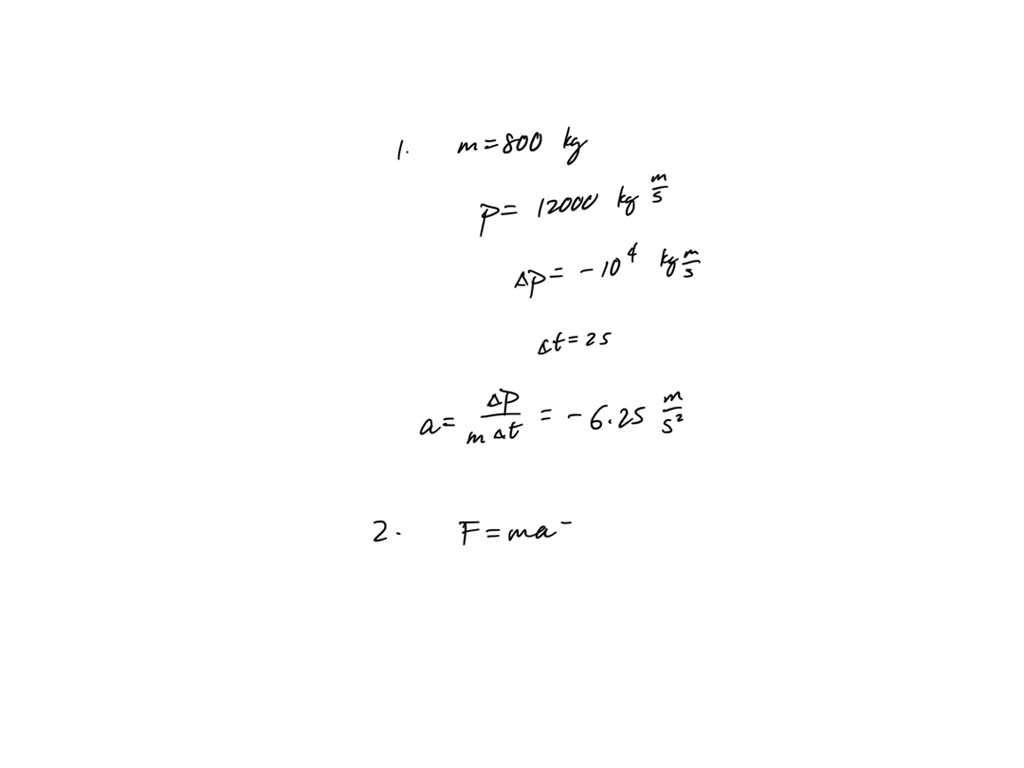 1. m = 800 kg
p = 12000 kg m/s
Δp = -10⁴ kg m/s
Δt = 2s
a = Δp/(m Δt) = -6.25 m/s²
2. F = ma -